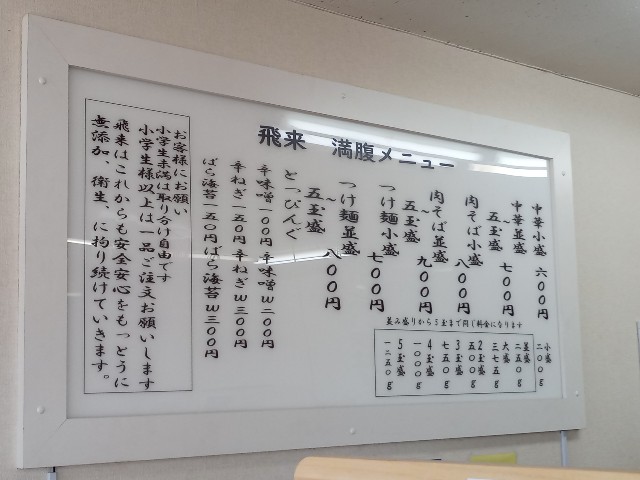 飛来　満腹メニュー
中華小盛　六００円
中華並盛
〜　七００円
五玉盛
肉そば小盛　八００円
肉そば並盛
〜　九００円
五玉盛
つけ麺小盛　七００円
つけ麺並盛
〜　八００円
五玉盛
とっぴんぐ
辛味噌一００円　辛味噌W二００円
辛ねぎ一五０円　辛ねぎW三００円
ばら海苔一五０円　ばら海苔W三００円
並み盛りから５玉まで同じ料金になります
小盛　二００g
並盛　二五０g
大盛　三七五g
２玉盛　五００g
３玉盛　七五０g
４玉盛　一０００g
５玉盛　一二五０g
お客様にお願い
小学生未満は取り分け自由です
小学生様以上は一品ご注文お願いします
飛来はこれからも安全安心をもっとうに
無添加、衛生、に拘り続けていきます。